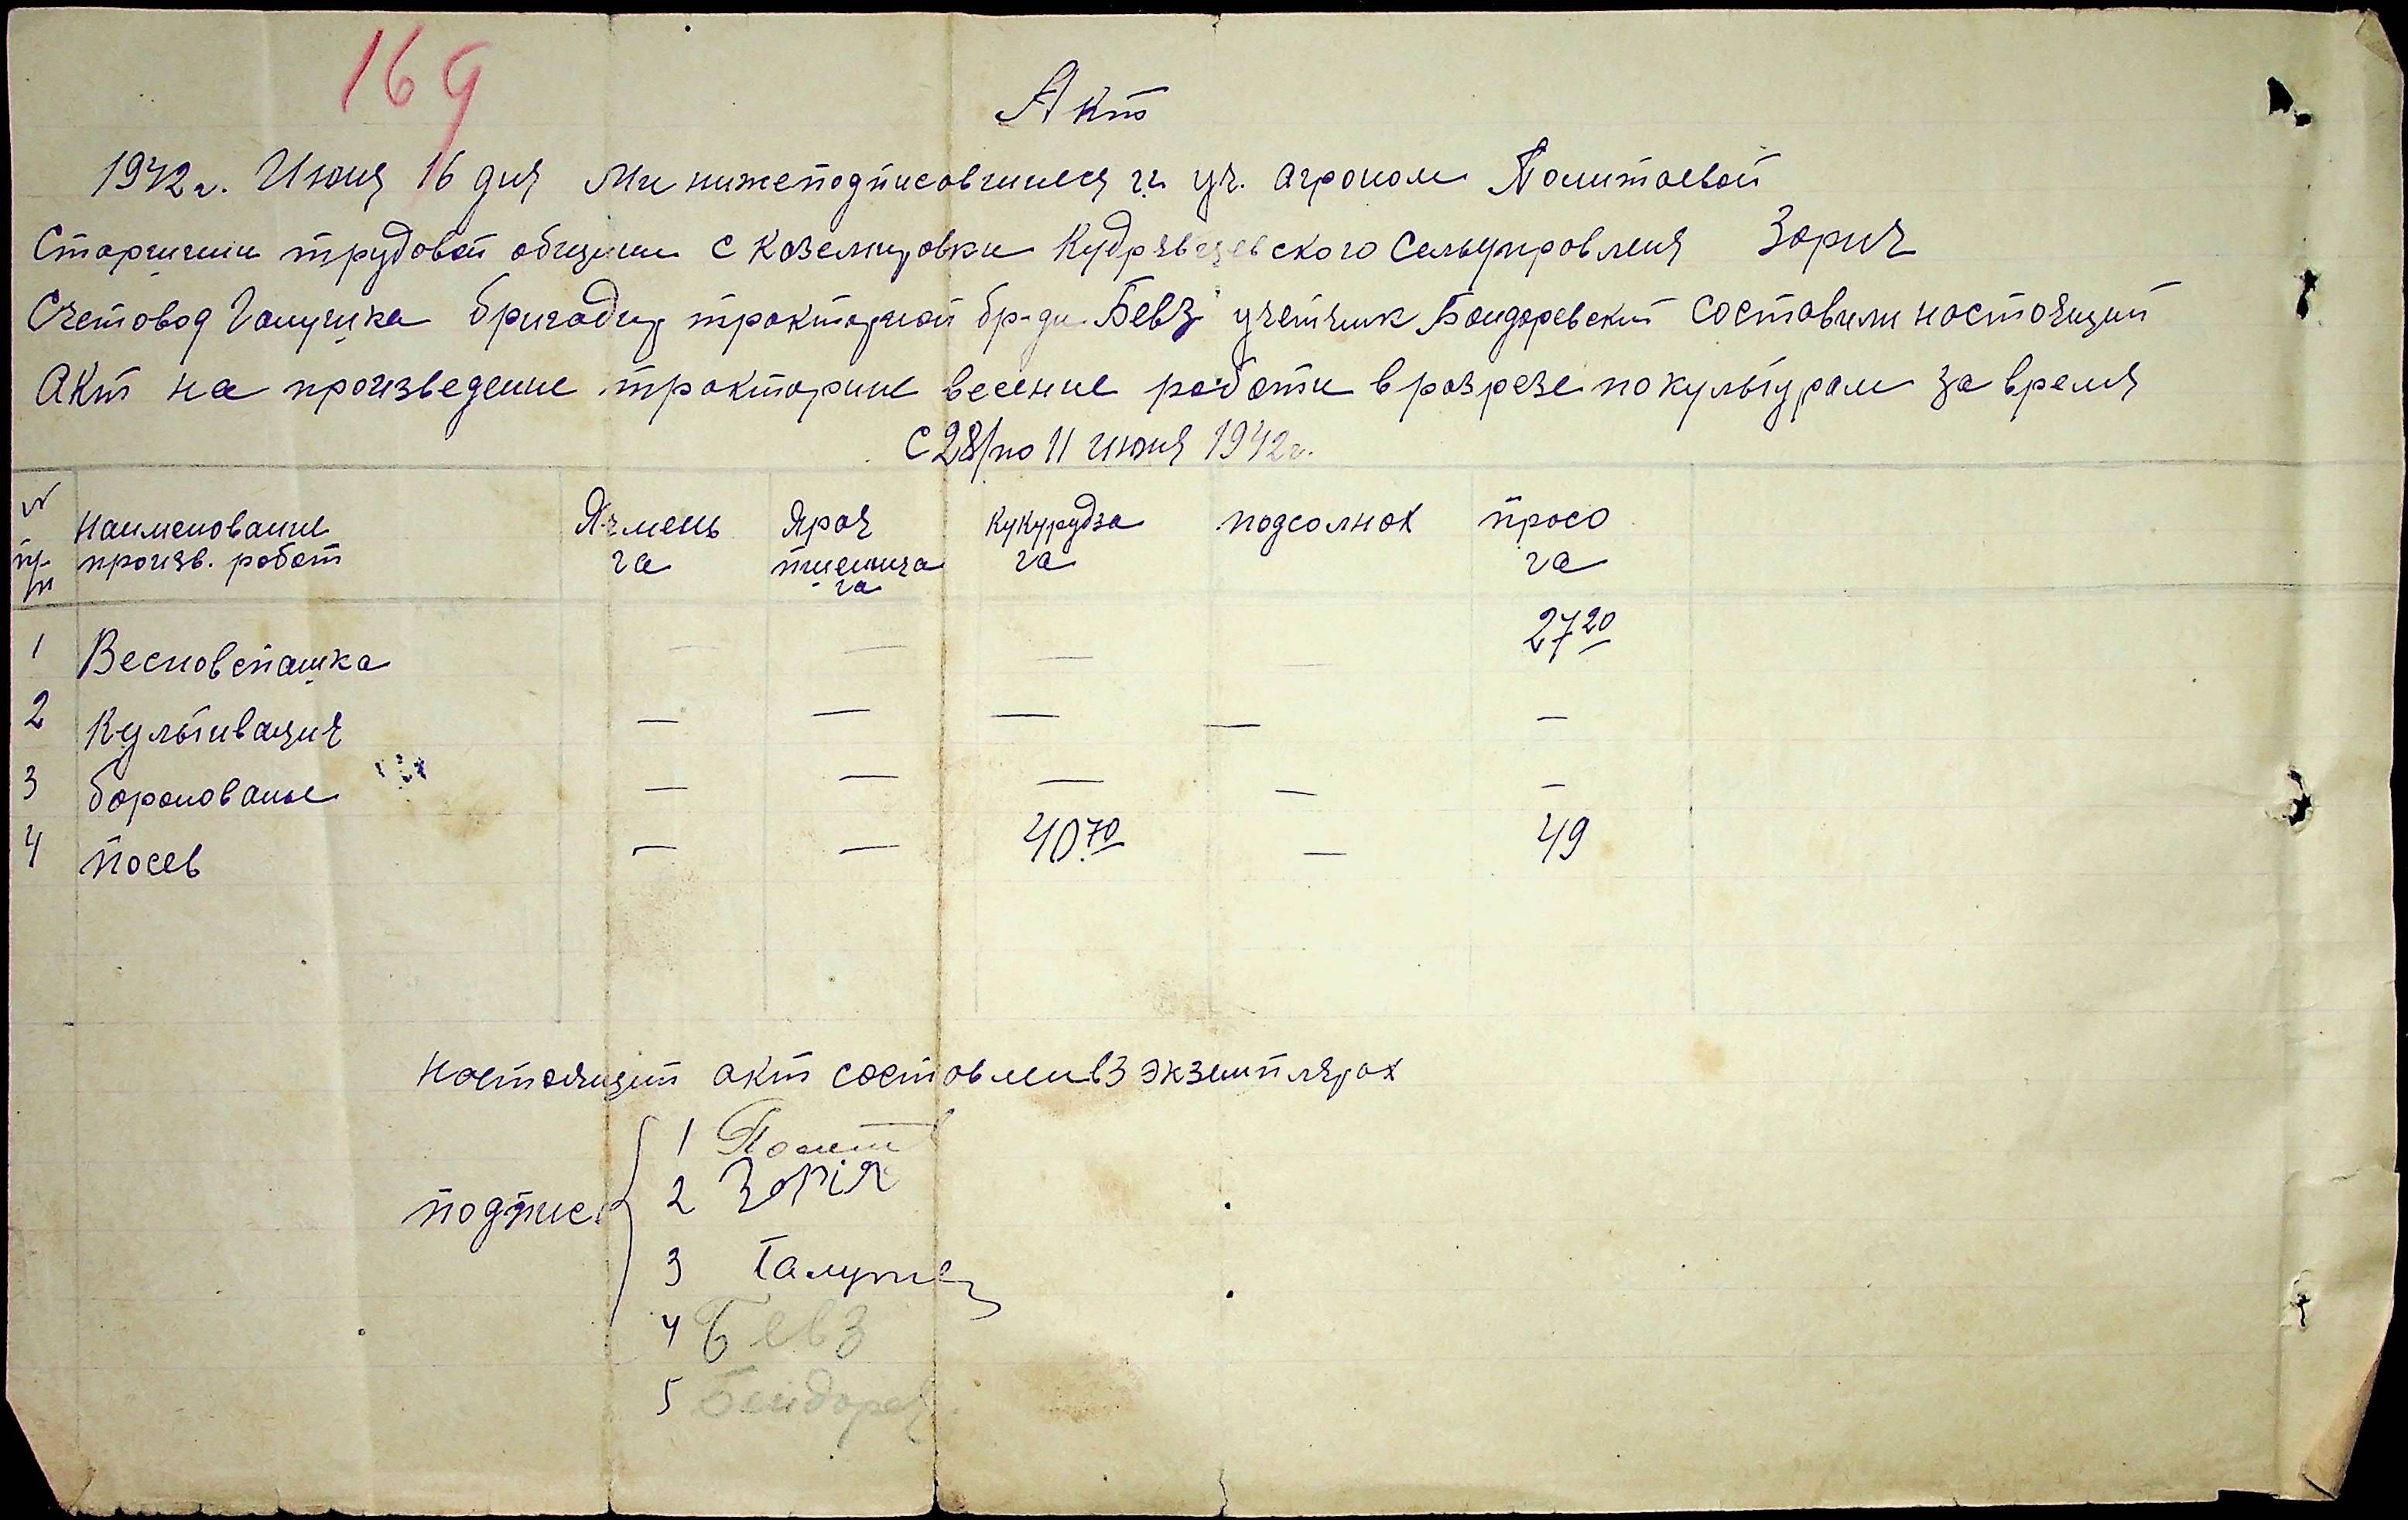 169
Акт
1942 г. Июня 16 дня Ми нижеподписовшиеся уч. агроном Политаевой
Старшини трудовой общини с Козельщовки Кудрявцевского Сельуправления Зорич
Счетовод Галушка бригадир тракторной бр-ди Бевз учетчик Бондаревский составили настоящий
Акт на произведение тракторние весение работи в разрезе по культурам за время
С 28/по 11 июня 1942 г.
№ пп Наименование произв. работ Ячмень га Ярая пшеница га Кукурудза га подсолнох просо га
1 Весновспашка — — — — 27 20
2 Культивация — — — — —
3 боронование — — — — —
4 посев — — 40.70 — 49
Настоящий акт составлен в 3 экземплярах
подписи
1 Полит
2 Зоріч
3 Галушка
4 Бевз
5 Бондарев